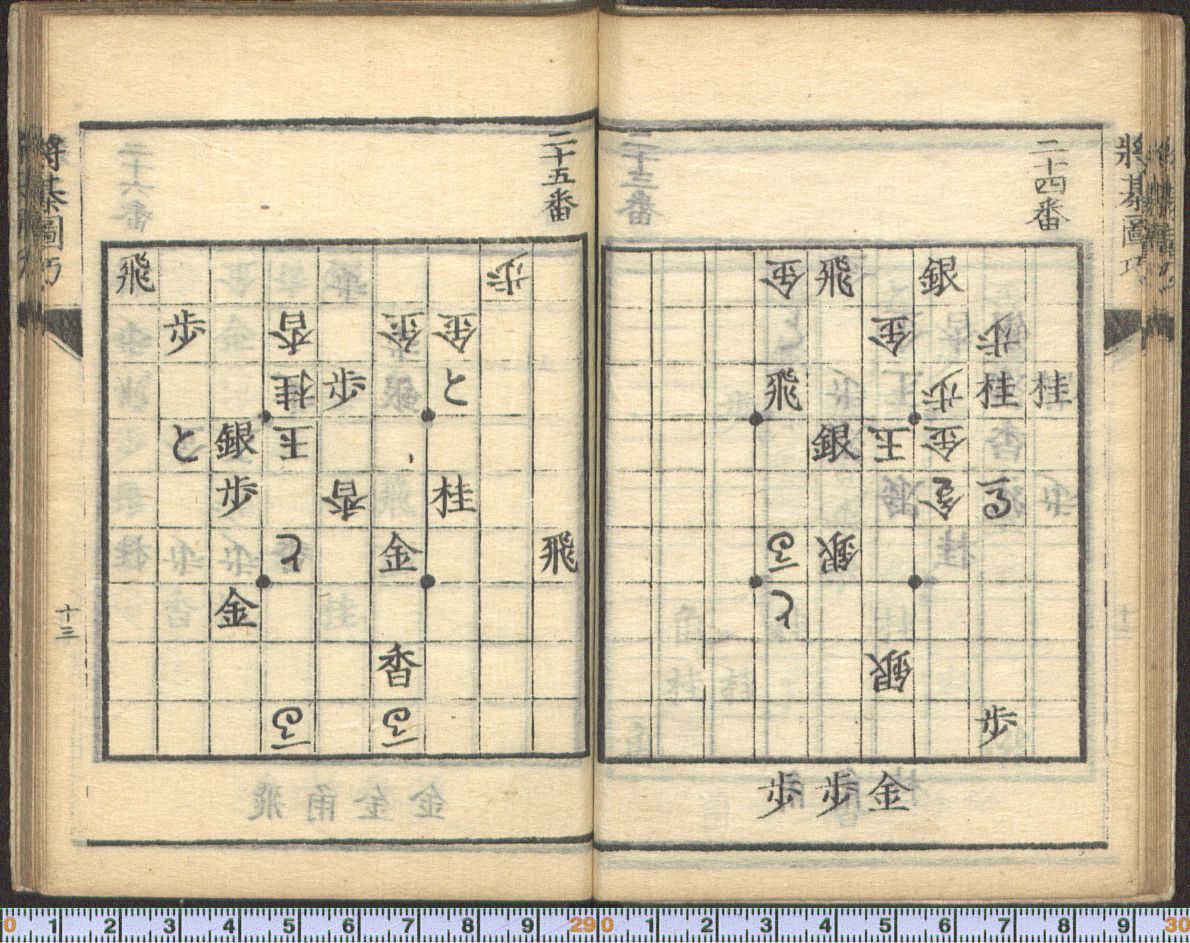 將棊圖巧
二十四番
金 飛 銀
金 歩
飛 歩 桂 桂
銀 玉 金
馬
馬 銀
と
銀
歩
歩 歩 金
二十五番
飛 歩
歩 香 金 金
桂 歩 と
と 銀 玉
歩 香 桂
と 金 飛
金
香
馬 馬
將棊圖巧
十三